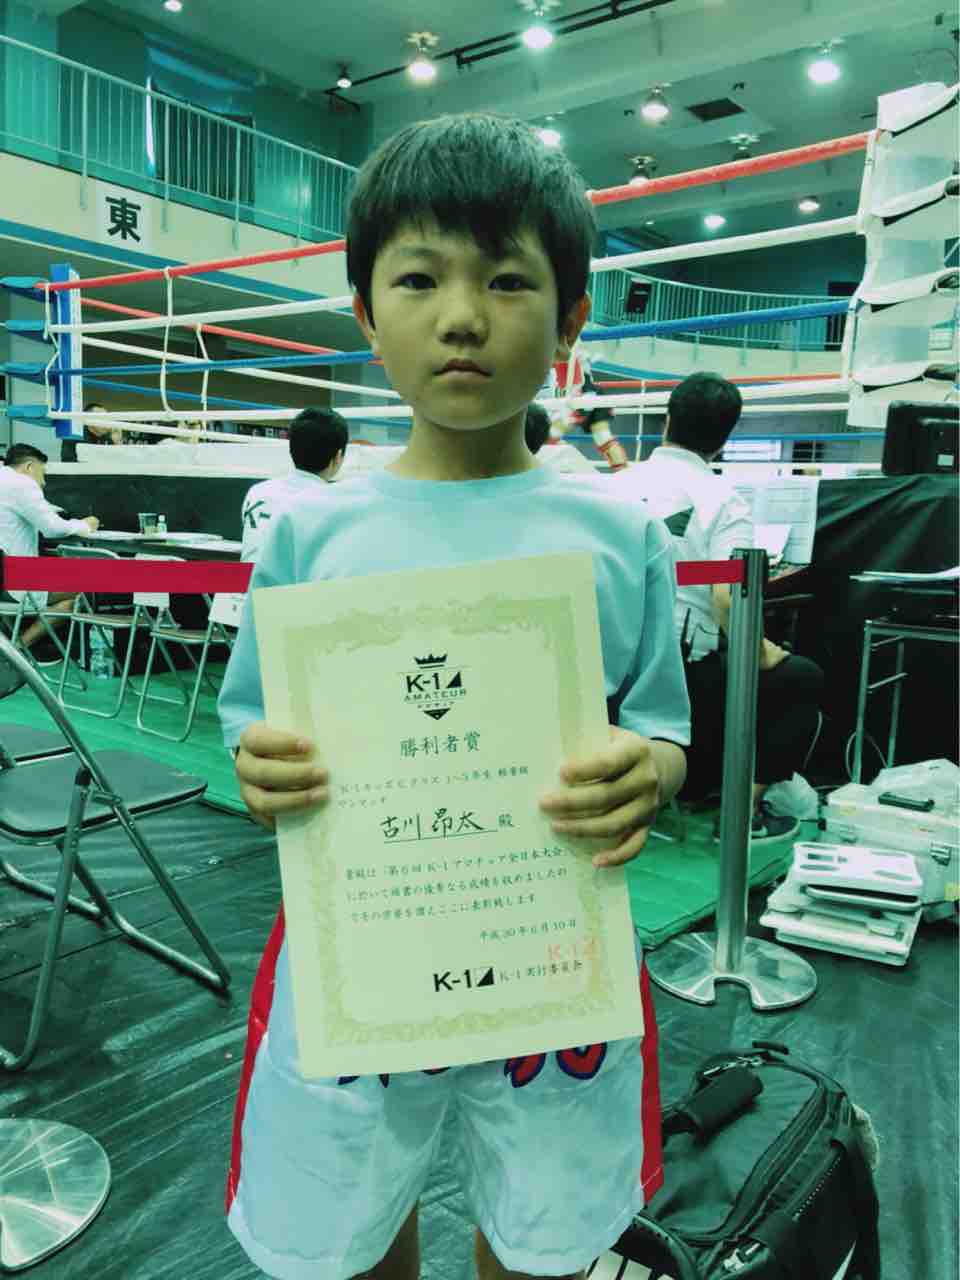 東
K-1
K-1
AMATEUR
アマチュア
勝利者賞
K-1キッズCクラス 1~3年生 軽量級
ワンマッチ
古川 昂太 殿
貴殿は「第6回 K-1アマチュア全日本大会」
に於いて頭書の優秀なる成績を収めましたの
でその栄誉を讃えここに表彰致します
平成30年6月10日
K-1 K-1実行委員会